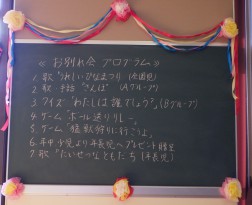 《お別れ会 プログラム》
1. 歌 "うれしいひなまつり" (全園児)
2. 歌・手話 "さんぽ" (Aグループ)
3. クイズ "わたしは誰でしょう?" (Bグループ)
4. ゲーム "ボール送りリレー"
5. ゲーム "猛獣狩りに行こうよ"
6. 年中少児より年長児へプレゼント贈呈
7. 歌 "たいせつなともだち" (年長児)